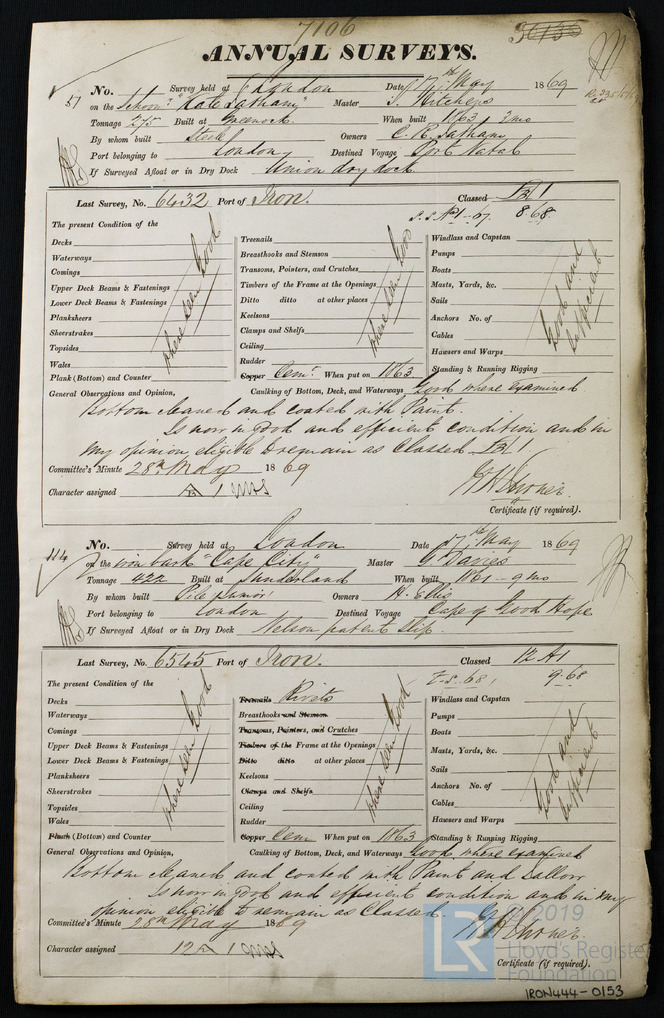 7106
ANNUAL SURVEYS.
51 No. Survey held at London Date 17th May 1869
on the Schoonr "Kate Tatham" Master J. Mitchess
Tonnage 275 Built at Greenock When built 1863 2mo
By whom built Steele Owners C. R. Tatham
Port belonging to London Destined Voyage Port Natal
If Surveyed Afloat or in Dry Dock Union dry dock
Last Survey, No. 6432 Port of Iron. Classed 1
S.S. No1-67 8.68.
The present Condition of the
Decks Treenails Windlass and Capstan
Waterways Breasthooks and Stemson Pumps
Comings Transoms, Pointers, and Crutches Boats
Upper Deck Beams & Fastenings Timbers of the Frame at the Openings Masts, Yards, &c.
Lower Deck Beams & Fastenings Ditto ditto at other places Sails
Planksheers Keelsons Anchors No. of
Sheerstrakes Clamps and Shelfs Cables
Topsides Ceiling Hawsers and Warps
Wales Rudder Standing & Running Rigging
where seen Good
where seen Good
Good and sufficient
Plank (Bottom) and Counter Copper Cemt. When put on 1863
General Observations and Opinion, Caulking of Bottom, Deck, and Waterways Good where examined
Bottom cleaned and coated with Paint.
Is now in good and efficient condition and in
my opinion eligible to remain as Classed 1
Committee's Minute 28th May 1869
Character assigned A 1
Certificate (if required).
114 No. Survey held at London Date 17th May 1869
on the iron bark "Cape City" Master G. Davies
Tonnage 422 Built at Sunderland When built 1861 - 9 mo
By whom built Pile Junior Owners H. Ellis
Port belonging to London Destined Voyage Cape of Good Hope
If Surveyed Afloat or in Dry Dock Nelson patent Slip.
Last Survey, No. 6545 Port of Iron. Classed 12 A1
9.68
The present Condition of the
Decks Treenails Rivets Windlass and Capstan
Waterways Breasthooks and Stemson Pumps
Comings Transoms, Pointers, and Crutches Boats
Upper Deck Beams & Fastenings Timbers of the Frame at the Openings Masts, Yards, &c.
Lower Deck Beams & Fastenings Ditto ditto at other places Sails
Planksheers Keelsons Anchors No. of
Sheerstrakes Clamps and Shelfs Cables
Topsides Ceiling Hawsers and Warps
Wales Rudder Standing & Running Rigging
where seen Good
where seen Good
Good and sufficient
Plank (Bottom) and Counter Copper Cem When put on 1863
General Observations and Opinion, Caulking of Bottom, Deck, and Waterways Good where examined
Bottom cleaned and coated with Paint and Tallow
Is now in good and efficient condition and in my
opinion eligible to remain as Classed.
Committee's Minute 28th May 1869
Character assigned 12 A 1
Certificate (if required).
LR © 2019
Lloyd's Register
Foundation
IRON444-0153